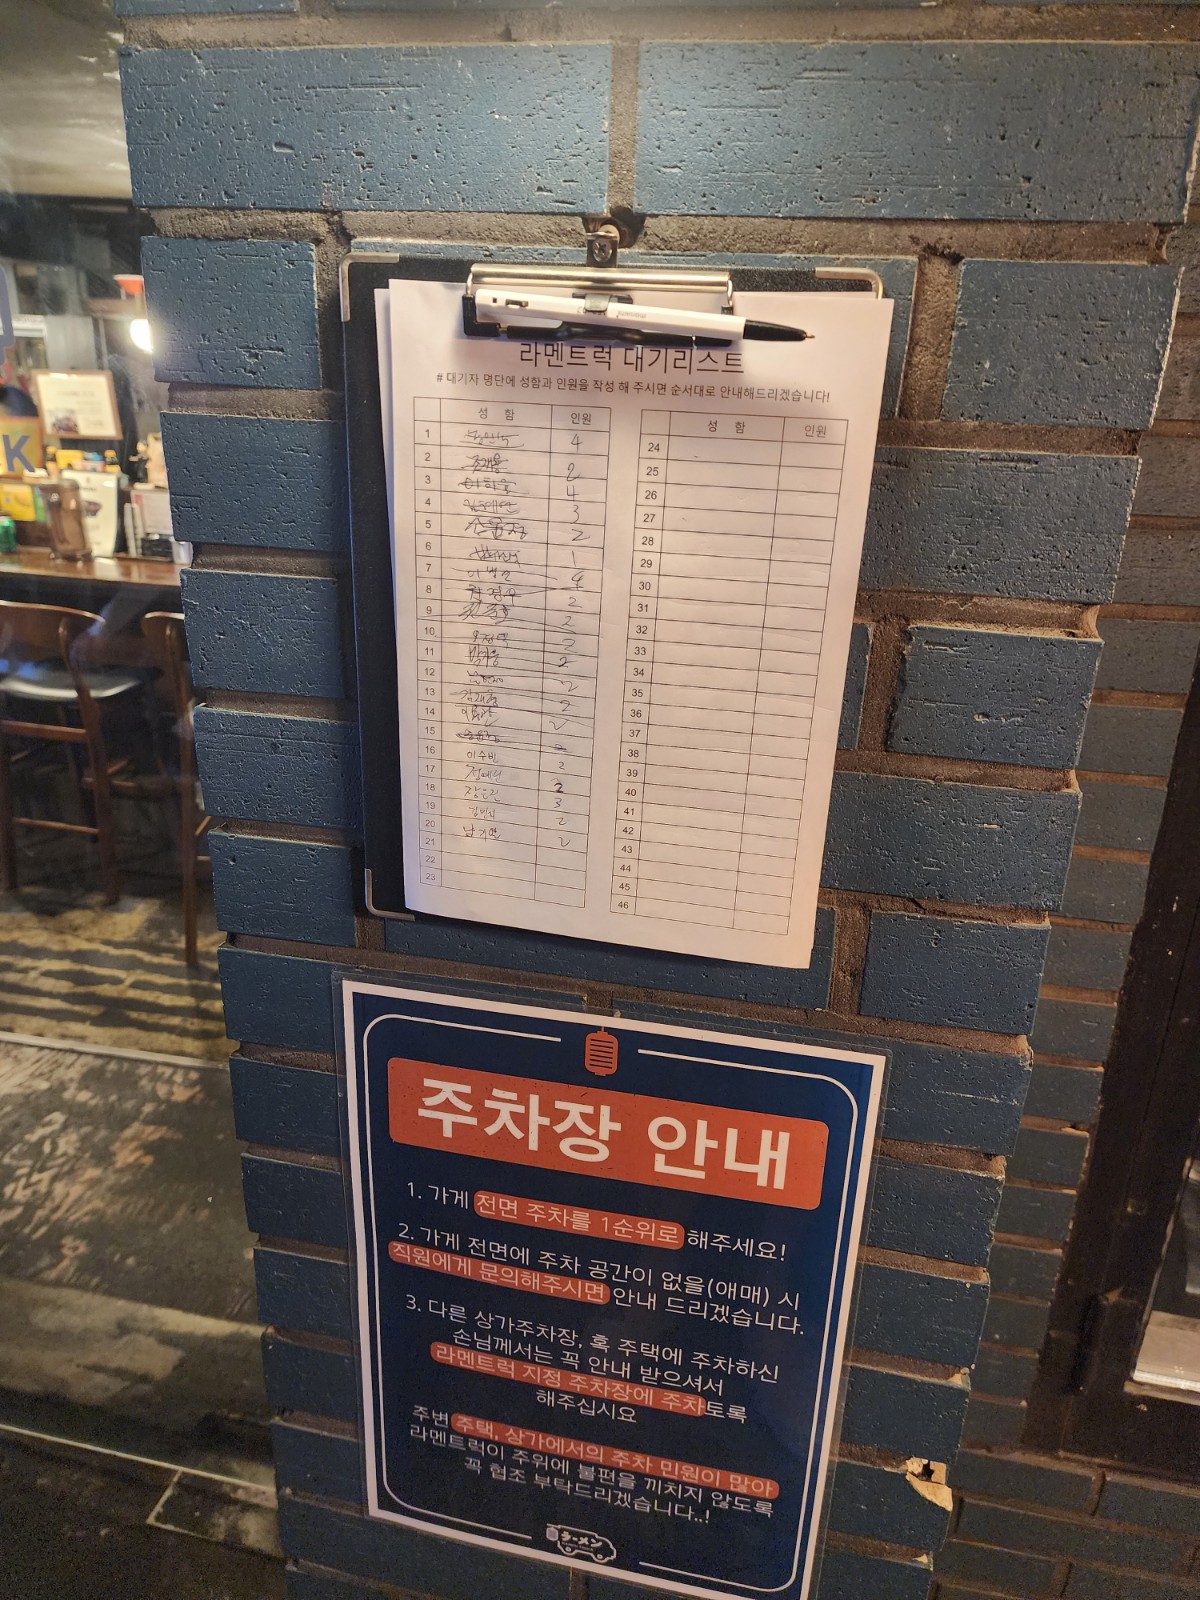 라멘트럭 대기리스트
# 대기자 명단에 성함과 인원을 작성 해 주시면 순서대로 안내해드리겠습니다!
성 함 인원
1 4
2 조재용 2
3 이하율 4
4 3
5 2
6 1
7 4
8 2
9 2
10 2
11 2
12 2
13 김재훈 2
14 2
15 2
16 이수빈 2
17 정혜린 2
18 장은진 3
19 2
20 남기연 2
21
22
23
성 함 인원
24
25
26
27
28
29
30
31
32
33
34
35
36
37
38
39
40
41
42
43
44
45
46
K
주차장 안내
1. 가게 전면 주차를 1순위로 해주세요!
2. 가게 전면에 주차 공간이 없을(애매) 시
직원에게 문의해주시면 안내 드리겠습니다.
3. 다른 상가주차장, 혹 주택에 주차하신
손님께서는 꼭 안내 받으셔서
라멘트럭 지정 주차장에 주차토록
해주십시요
주변 주택, 상가에서의 주차 민원이 많아
라멘트럭이 주위에 불편을 끼치지 않도록
꼭 협조 부탁드리겠습니다..!
ラーメン